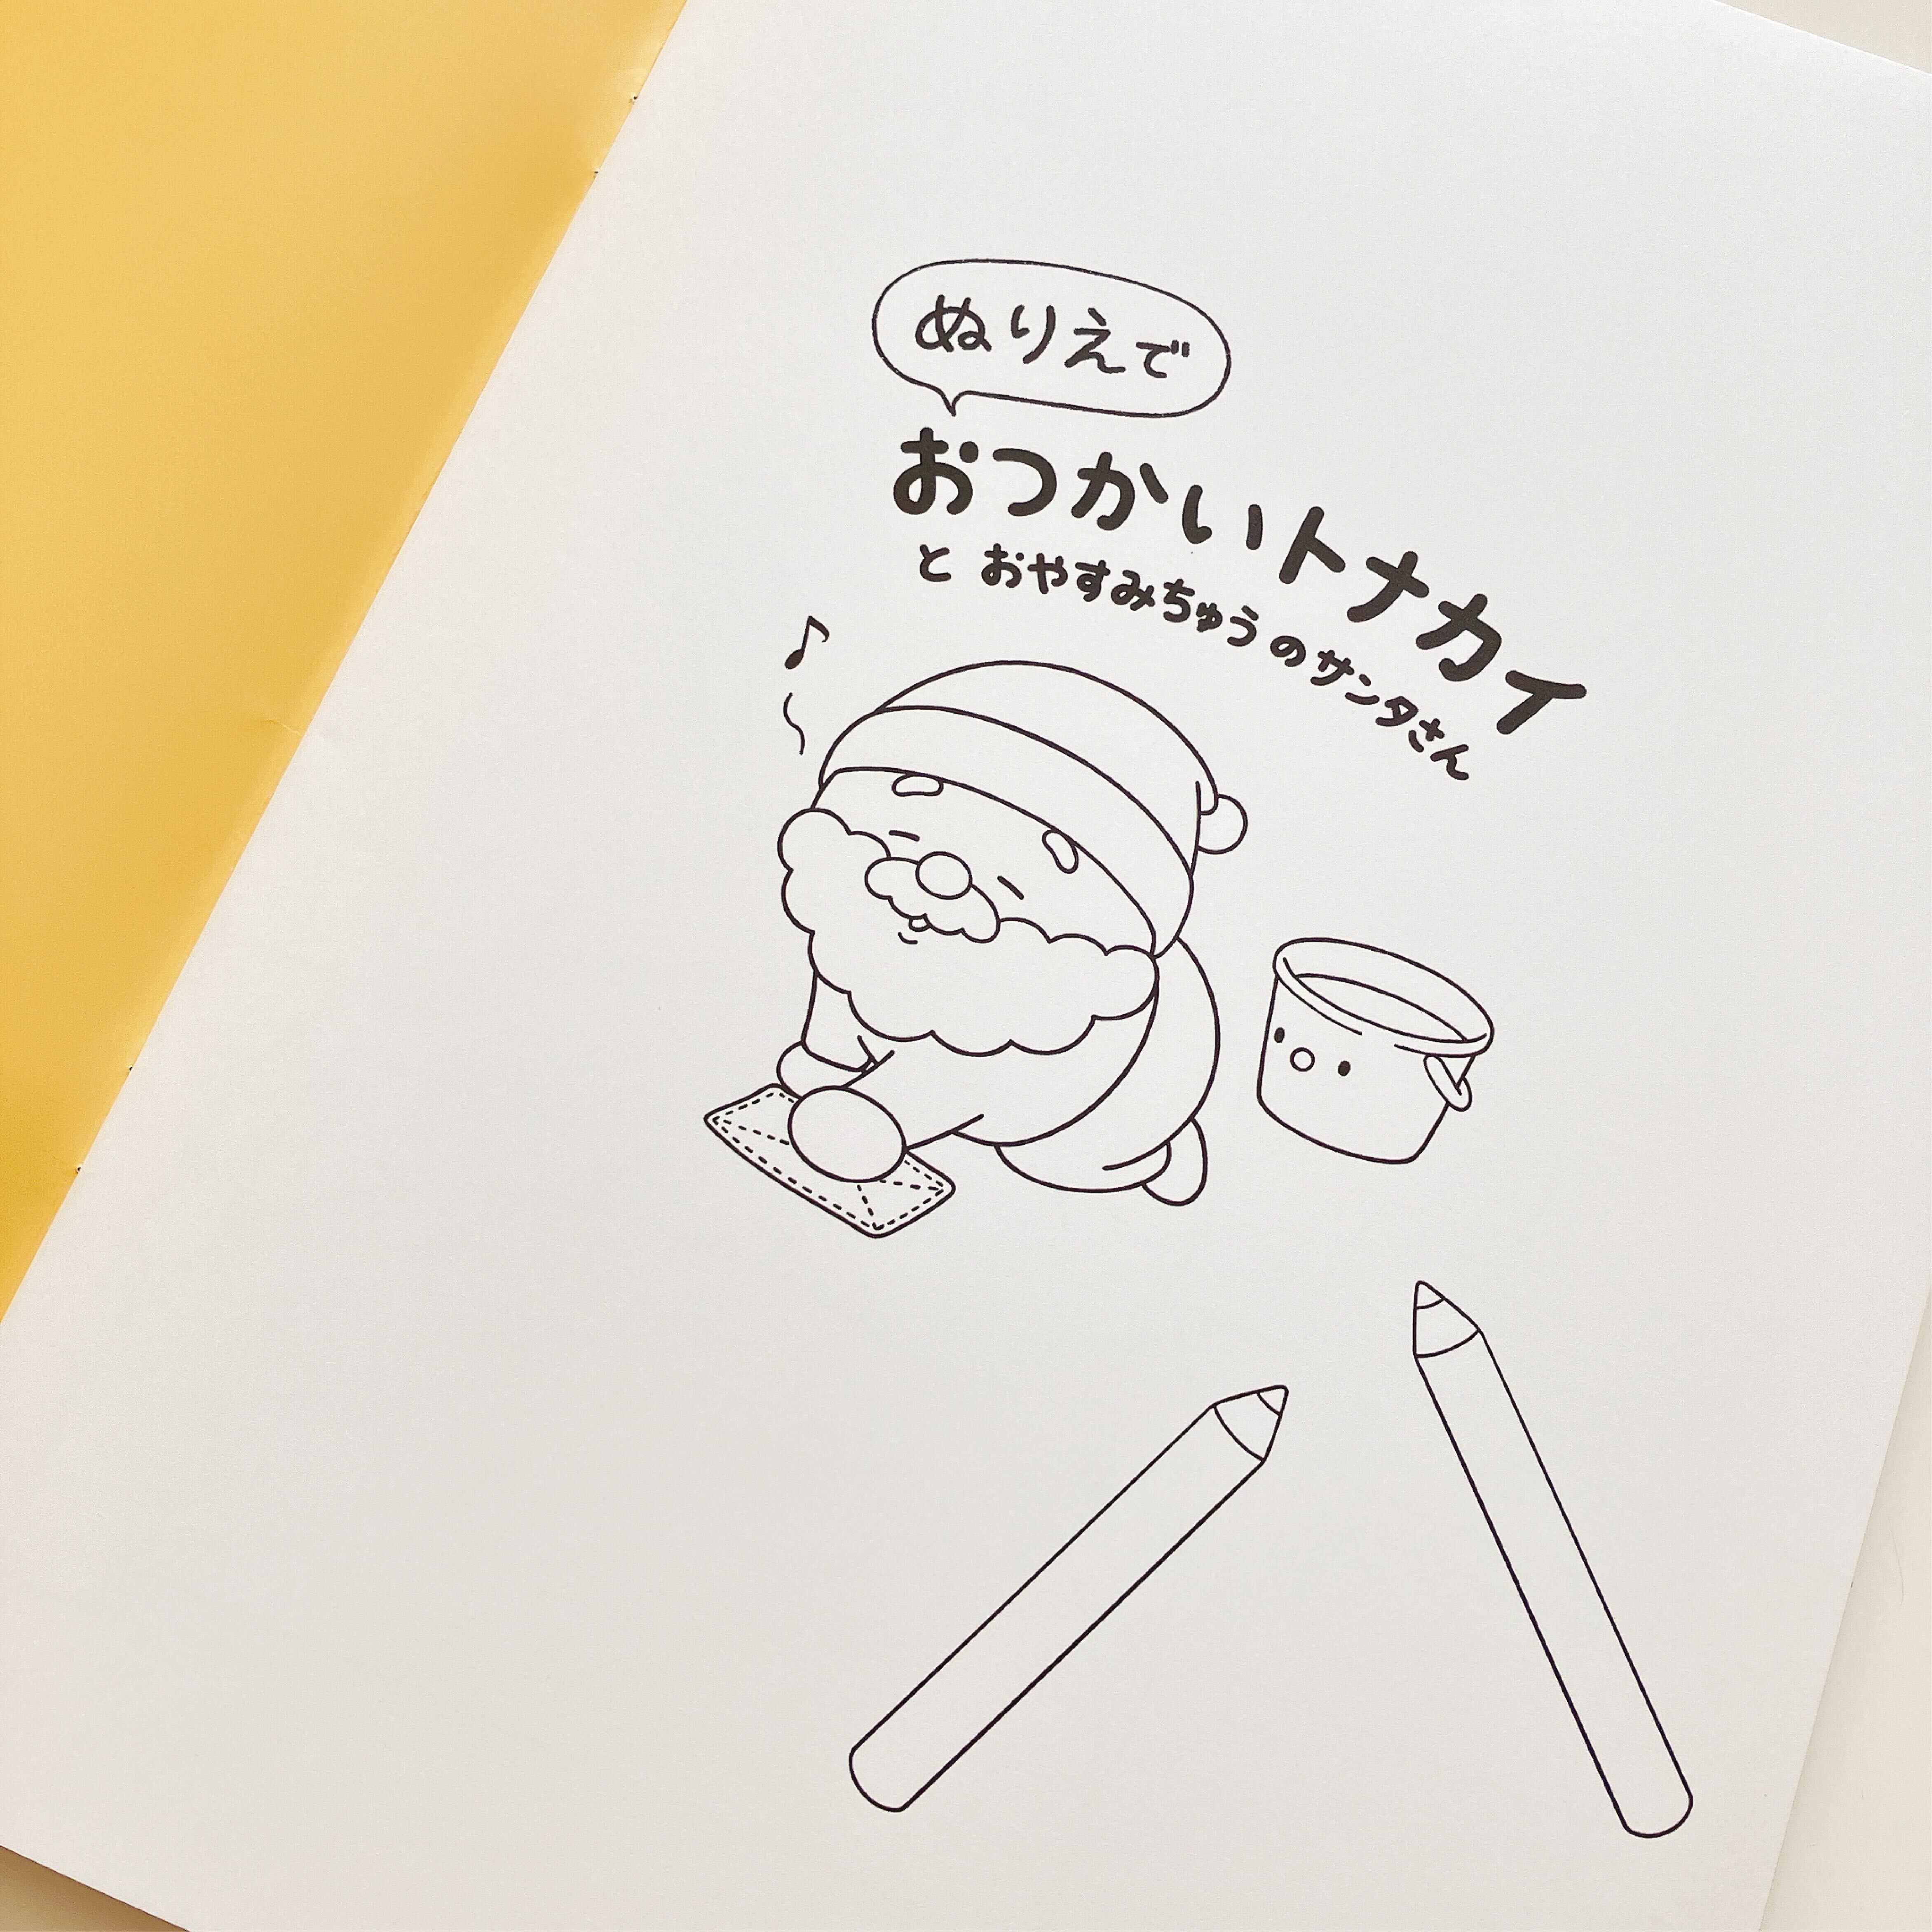 ぬりえで
おつかいトナカイ
と おやすみちゅうのサンタさん